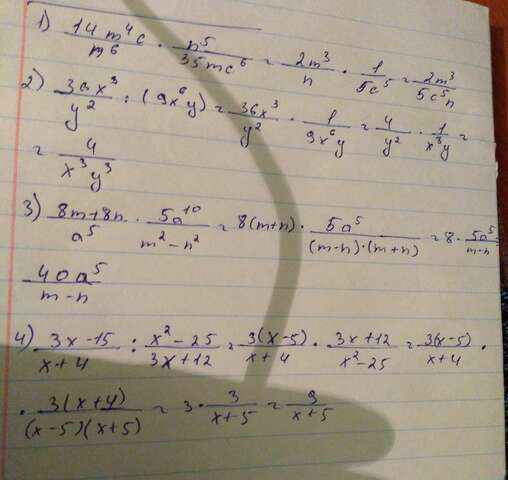 1) 14m⁴c/m⁶ · n⁵/35mc⁶ = 2m³/n · 1/5c⁵ = 2m³/5c⁵n
2) 36x³/y² : (9x⁶y) = 36x³/y² · 1/9x⁶y = 4/y² · 1/x³y =
= 4/x³y³
3) 8m+8n/a⁵ · 5a¹⁰/m²-n² = 8(m+n) · 5a⁵/(m-n)·(m+n) = 8 · 5a⁵/m-n
40a⁵/m-n
4) 3x-15/x+4 : x²-25/3x+12 = 3(x-5)/x+4 · 3x+12/x²-25 = 3(x-5)/x+4 ·
· 3(x+4)/(x-5)(x+5) = 3 · 3/x+5 = 9/x+5